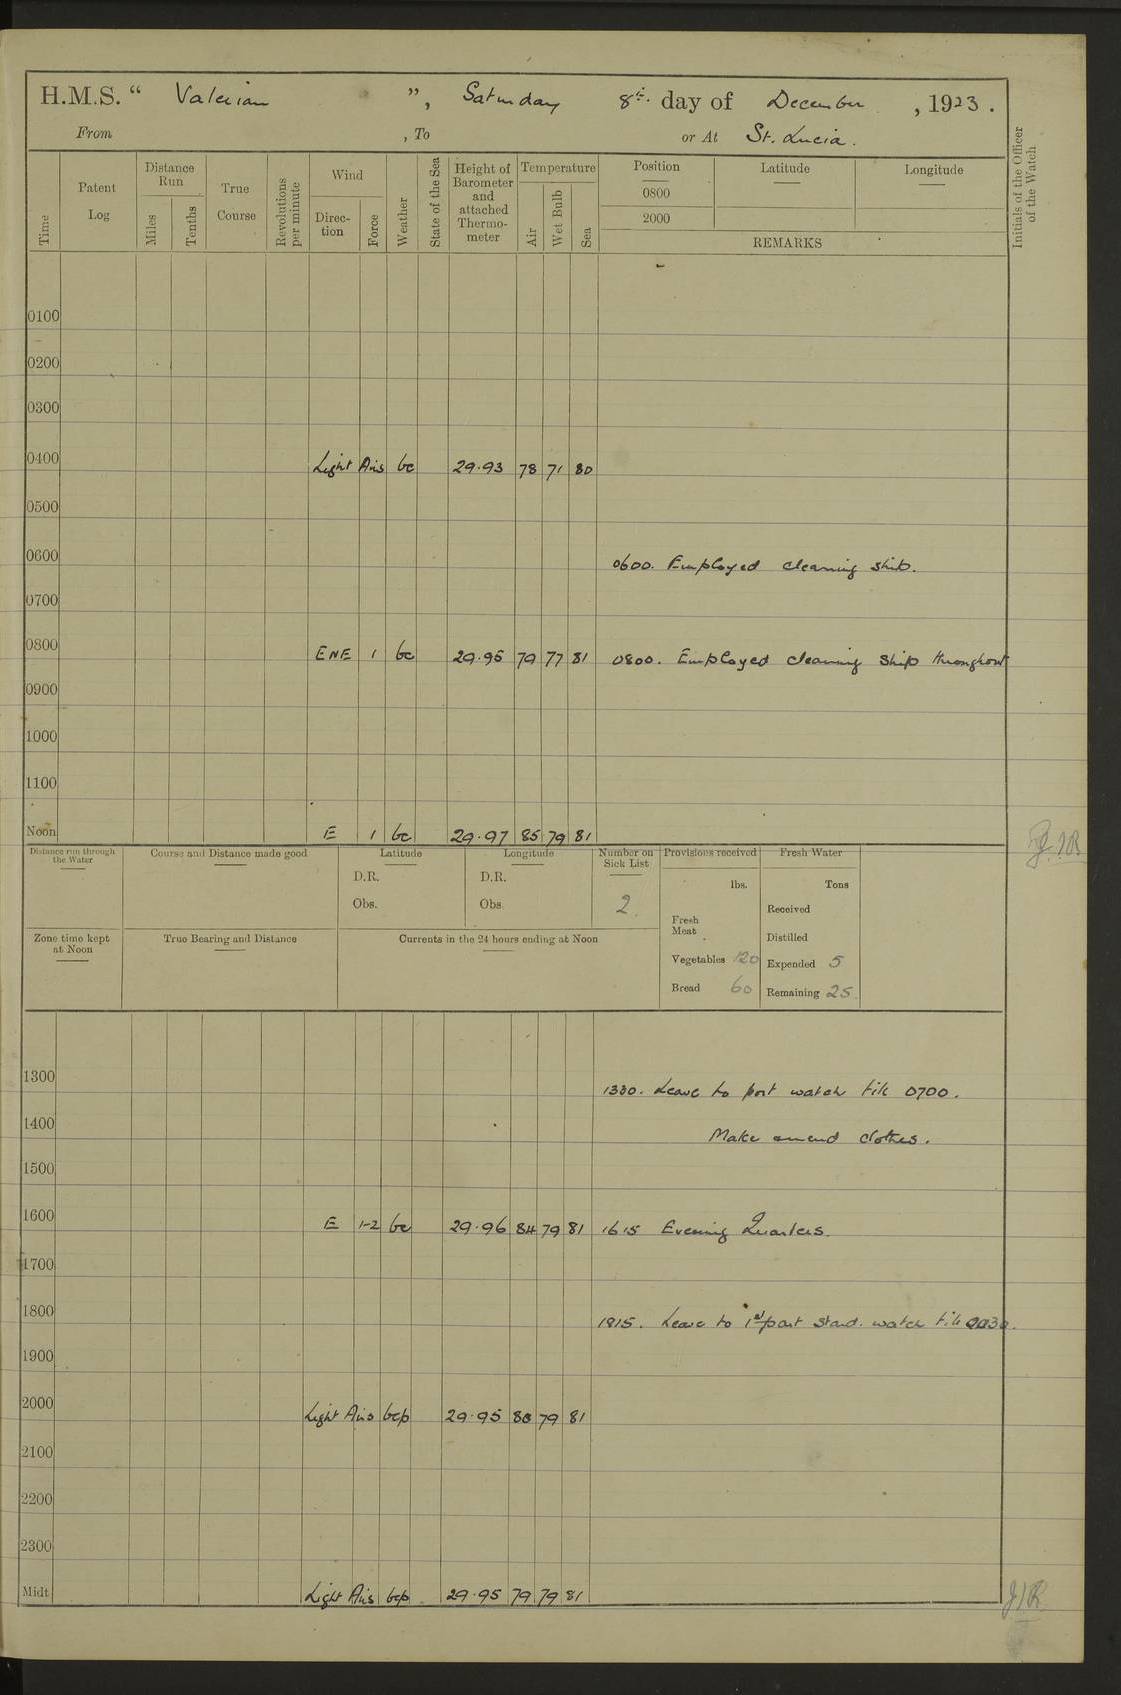 H.M.S. “ Valerian ”, Saturday 8th. day of December, 1923.
From , To or At St. Lucia.
Time
Patent Log
Distance Run
Miles
Tenths
True Course
Revolutions per minute
Wind
Direction
Force
Weather
State of the Sea
Height of Barometer and attached Thermometer
Temperature
Air
Wet Bulb
Sea
Position
0800
2000
Latitude
Longitude
REMARKS
Initials of the Officer of the Watch
0100
0200
0300
0400 Light Airs bc 29.93 78 71 80
0500
0600 0600. Employed cleaning ship.
0700
0800 ENE 1 bc 29.95 79 77 81 0800. Employed cleaning ship throughout
0900
1000
1100
Noon E 1 bc 29.97 85 79 81
Distance run through the Water
Course and Distance made good
Latitude
D.R.
Obs.
Longitude
D.R.
Obs
Number on Sick List
2.
Provisions received
lbs.
Fresh Meat
Vegetables 120
Bread 60
Fresh Water
Tons
Received
Distilled
Expended 5
Remaining 25
Zone time kept at Noon
True Bearing and Distance
Currents in the 24 hours ending at Noon
1300 1330. Leave to port watch till 0700.
1400 Make amend clothes.
1500
1600 E 1-2 bc 29.96 84 79 81 1615 Evening Quarters.
1700
1800 1815. Leave to 1st part stard. watch till
1900
2000 Light Airs bcp 29.95 80 79 81
2100
2200
2300
Midt. Light Airs bcp 29.95 79 79 81